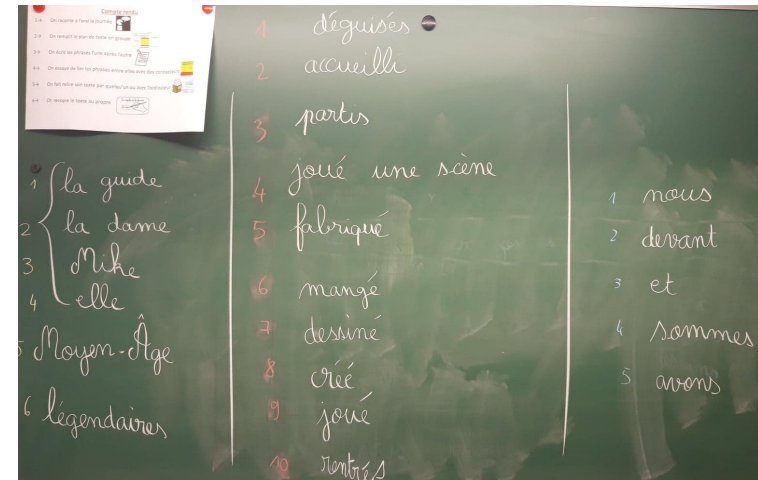 Compte rendu
1→ On raconte à l'oral la journée
2→ On remplit le plan de texte en groupe
3→ On écrit les phrases l'une après l'autre
4→ On essaye de lier les phrases entre elles avec des connecteurs
5→ On fait relire son texte par quelqu'un ou avec l'ordinateur
6→ On recopie le texte au propre
1 la guide
2 la dame
3 Mike
4 elle
5 Moyen-Âge
6 légendaires
1 déguisés
2 accueilli
3 partis
4 joué une scène
5 fabriqué
6 mangé
7 dessiné
8 créé
9 joué
10 rentrés
1 nous
2 devant
3 et
4 sommes
5 avons